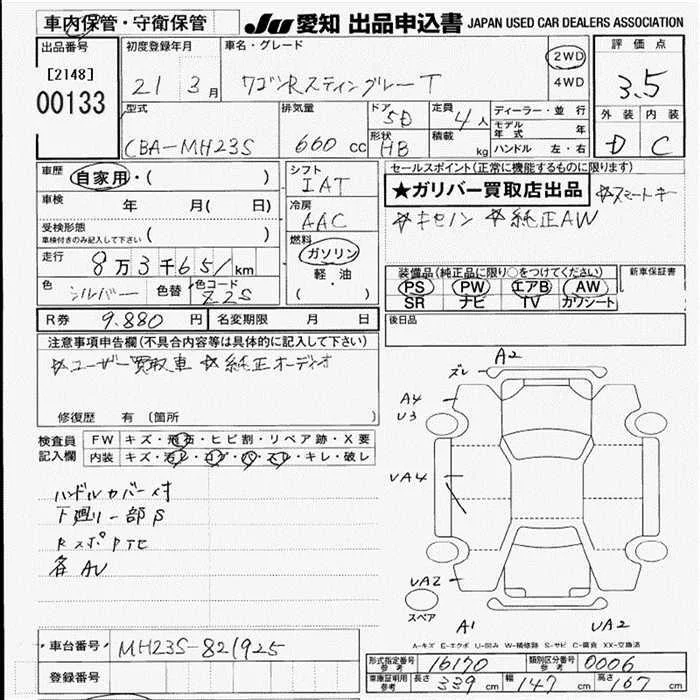 車内保管・守衛保管
JU 愛知 出品申込書 JAPAN USED CAR DEALERS ASSOCIATION
出品番号
[2148]
00133
初度登録年月
21 3月
車名・グレード
ワゴンRスティングレーT
2WD
4WD
評価点
3.5
外装 内装
D C
型式
CBA-MH23S
排気量
660 cc
ドア
5D
形状
HB
定員
4人
積載
kg
ディーラー・並行
モデル年式 年
ハンドル 左・右
車歴
自家用・( )
車検 年 月( 日)
受検形態
車検付きのみ記入して下さい ( )
走行
8万3千651km
色
シルバー
色替
色コード
Z2S
シフト
IAT
冷房
AAC
燃料
ガソリン
軽・油
( )
セールスポイント(正常に機能するものに限ります)
★ガリバー買取店出品 ☆スマートキー
☆キセノン ☆純正AW
装備品(純正品に限り○をつけてください)
PS PW エアB AW
SR ナビ TV カワシート
新車保証書
後日品
R券 9.880円
名変期限 月 日
注意事項申告欄(不具合内容等は具体的に記入して下さい)
☆ユーザー買取車 ☆純正オーディオ
修復歴 有 (箇所 )
検査員記入欄
FW キズ・飛石・ヒビ割・リペア跡・X要
内装 キズ・汚レ・コゲ・穴・スレ・キレ・破レ
ハンドルカバー付
下廻り一部S
各AU
ズレ
A2
A4
U3
UA4
UA2
スペア
A1
UA2
A-キズ E-エクボ U-凹み W-補修跡 S-サビ C-腐食 XX-交換済
車台番号 MH23S-821925
登録番号
形式指定番号 参考 16170
類別区分番号 参考 0006
車庫証明用 参考 長さ 339cm 幅 147cm 高さ 167cm